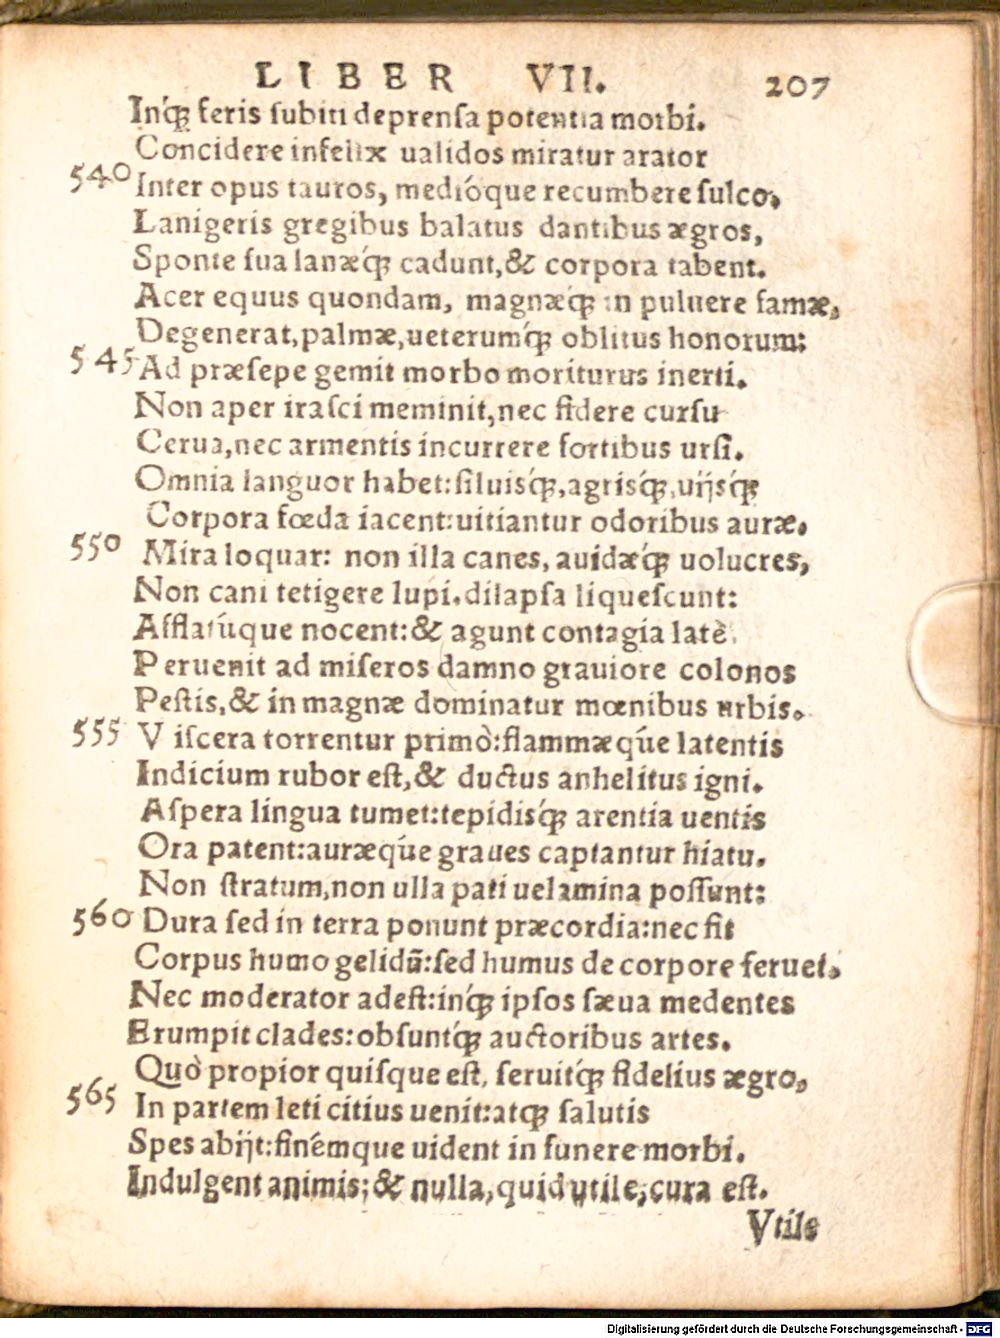 LIBER VII. 207
Inq́ꝫ feris subiti deprensa potentia morbi.
Concidere infelix ualidos miratur arator
540 Inter opus tauros, medióque recumbere sulco.
Lanigeris gregibus balatus dantibus ægros,
Sponte sua lanæq́ꝫ cadunt, & corpora tabent.
Acer equus quondam, magnæq́ꝫ in puluere famæ,
Degenerat, palmæ, ueterumq́ꝫ oblitus honorum:
545 Ad præsepe gemit morbo moriturus inerti.
Non aper irasci meminit, nec fidere cursu
Cerua, nec armentis incurrere fortibus ursi.
Omnia languor habet: siluisq́ꝫ, agrisq́ꝫ, uijsq́ꝫ
Corpora fœda iacent: uitiantur odoribus auræ.
550 Mira loquar: non illa canes, auidæq́ꝫ uolucres,
Non cani tetigere lupi. dilapsa liquescunt:
Afflatúque nocent: & agunt contagia latè.
Peruenit ad miseros damno grauiore colonos
Pestis, & in magnæ dominatur mœnibus urbis.
555 Viscera torrentur primò: flammæq́ue latentis
Indicium rubor est, & ductus anhelitus igni.
Aspera lingua tumet: tepidisq́ꝫ arentia uentis
Ora patent: auræq́ue graues captantur hiatu.
Non stratum, non ulla pati uelamina possunt:
560 Dura sed in terra ponunt præcordia: nec fit
Corpus humo gelidũ: sed humus de corpore feruet.
Nec moderator adest: inq́ꝫ ipsos sæua medentes
Erumpit clades: obsuntq́ꝫ auctoribus artes.
Quò propior quisque est, seruitq́ꝫ fidelius ægro,
565 In partem leti citius uenit: atqꝫ salutis
Spes abijt: finémque uident in funere morbi.
Indulgent animis; & nulla, quid utile, cura est.
Vtile
Digitalisierung gefördert durch die Deutsche Forschungsgemeinschaft - DFG